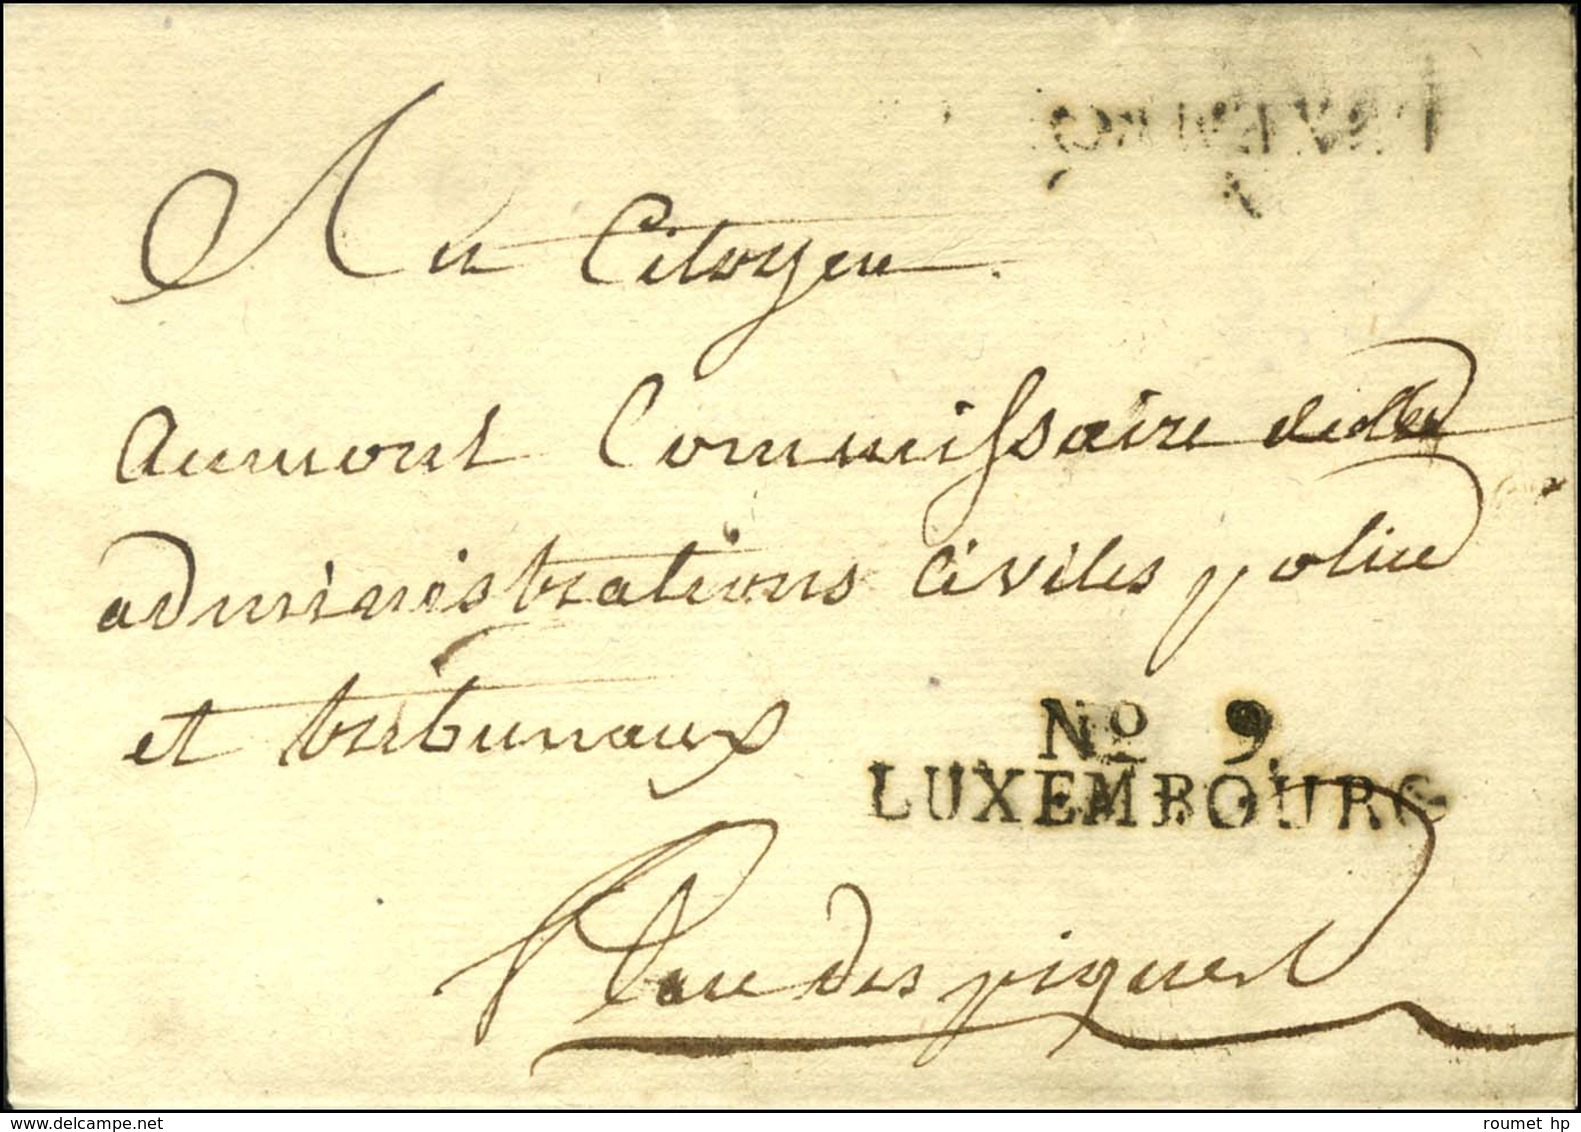 Au Citoyen
Aumont Commissaire des
administrations civiles police
et tribunaux
No 9
LUXEMBOURG
Place des piques
delcampe.net
roumet hp